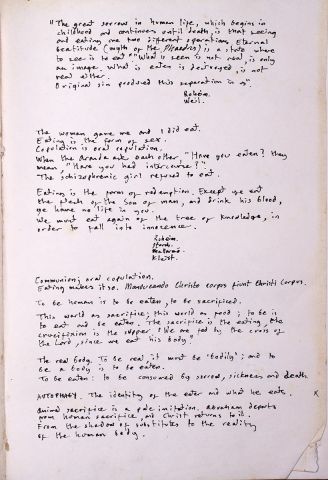 "The great sorrow in human life, which begins in
childhood and continues until death, is that seeing
and eating are two different operations. Eternal
beatitude (myth of the Phaedrus) is a state where
to see is to eat" "What is seen is not real, is only
an image. What is eaten is destroyed, is not
real either.
Original sin produced this separation in us".
Weil.
The woman gave me and I did eat.
Eating is the form of sex.
Copulation is oral copulation.
When the Aranda ask each other, "Have you eaten? they
mean "Have you had intercourse?"
The Schizophrenic girl refused to eat.
Eating is the form of redemption. Except ye eat
the flesh of the Son of man, and drink his blood,
ye have no life in you.
We must eat again of the tree of knowledge, in
order to fall into innocence.
Kleist.
Communion; oral copulation.
Eating makes it so. Manducando Christi corpus fiunt Christi Corpus.
To be human is to be eaten, to be sacrificed.
This world as sacrifice; this world as food; to be is
to eat and be eaten. The sacrifice is the eating, the
crucifixion is the supper. "We are fed by the cross of
the Lord, since we eat his body"
The real body. To be real it must be 'bodily'; and to
be a body is to be eaten.
To be eaten: to be consumed by sorrow, sickness and death
AUTOPHAGY. The identity of the eater and what he eats. x
Animal sacrifice is a pale imitation. Abraham departs
from human sacrifice, and Christ returns to it.
From the shadow of substitutes to the reality
of the human body.